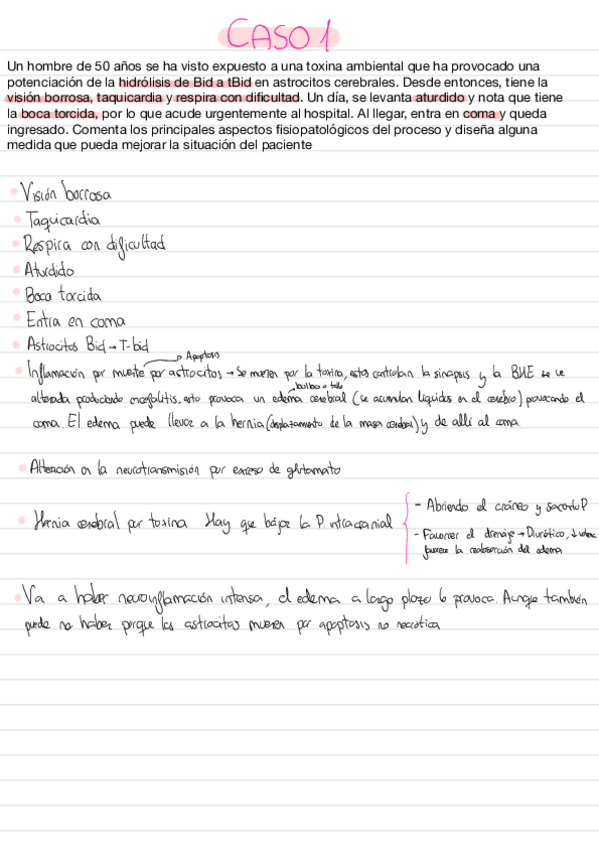 CASO 1
Un hombre de 50 años se ha visto expuesto a una toxina ambiental que ha provocado una
potenciación de la hidrólisis de Bid a tBid en astrocitos cerebrales. Desde entonces, tiene la
visión borrosa, taquicardia y respira con dificultad. Un día, se levanta aturdido y nota que tiene
la boca torcida, por lo que acude urgentemente al hospital. Al llegar, entra en coma y queda
ingresado. Comenta los principales aspectos fisiopatológicos del proceso y diseña alguna
medida que pueda mejorar la situación del paciente
• Visión borrosa
• Taquicardia
• Respira con dificultad
• Aturdido
• Boca torcida
• Entra en coma
• Astrocitos Bid → T-bid
→ Apoptosis
• Inflamación por muerte por astrocitos → Se mueren por la toxina, estos controlan la sinapsis y la BHE se ve
alterada produciendo encefalitis, esto provoca un edema cerebral (se acumulan líquidos en el cerebro) provocando el
coma. El edema puede llevar a la hernia (desplazamiento de la masa cerebral) y de allí al coma.
• Alteración en la neurotransmisión por exceso de glutamato
• Hernia cerebral por toxina Hay que bajar la P. intracraneal
- Abriendo el cráneo y sacando P
- Favorecer el drenaje → Diurético, ↓
favorece la reabsorción del edema
• Va a haber neuroinflamación intensa, el edema a largo plazo lo provoca. Aunque también
puede no haber porque los astrocitos mueren por apoptosis no necrótica